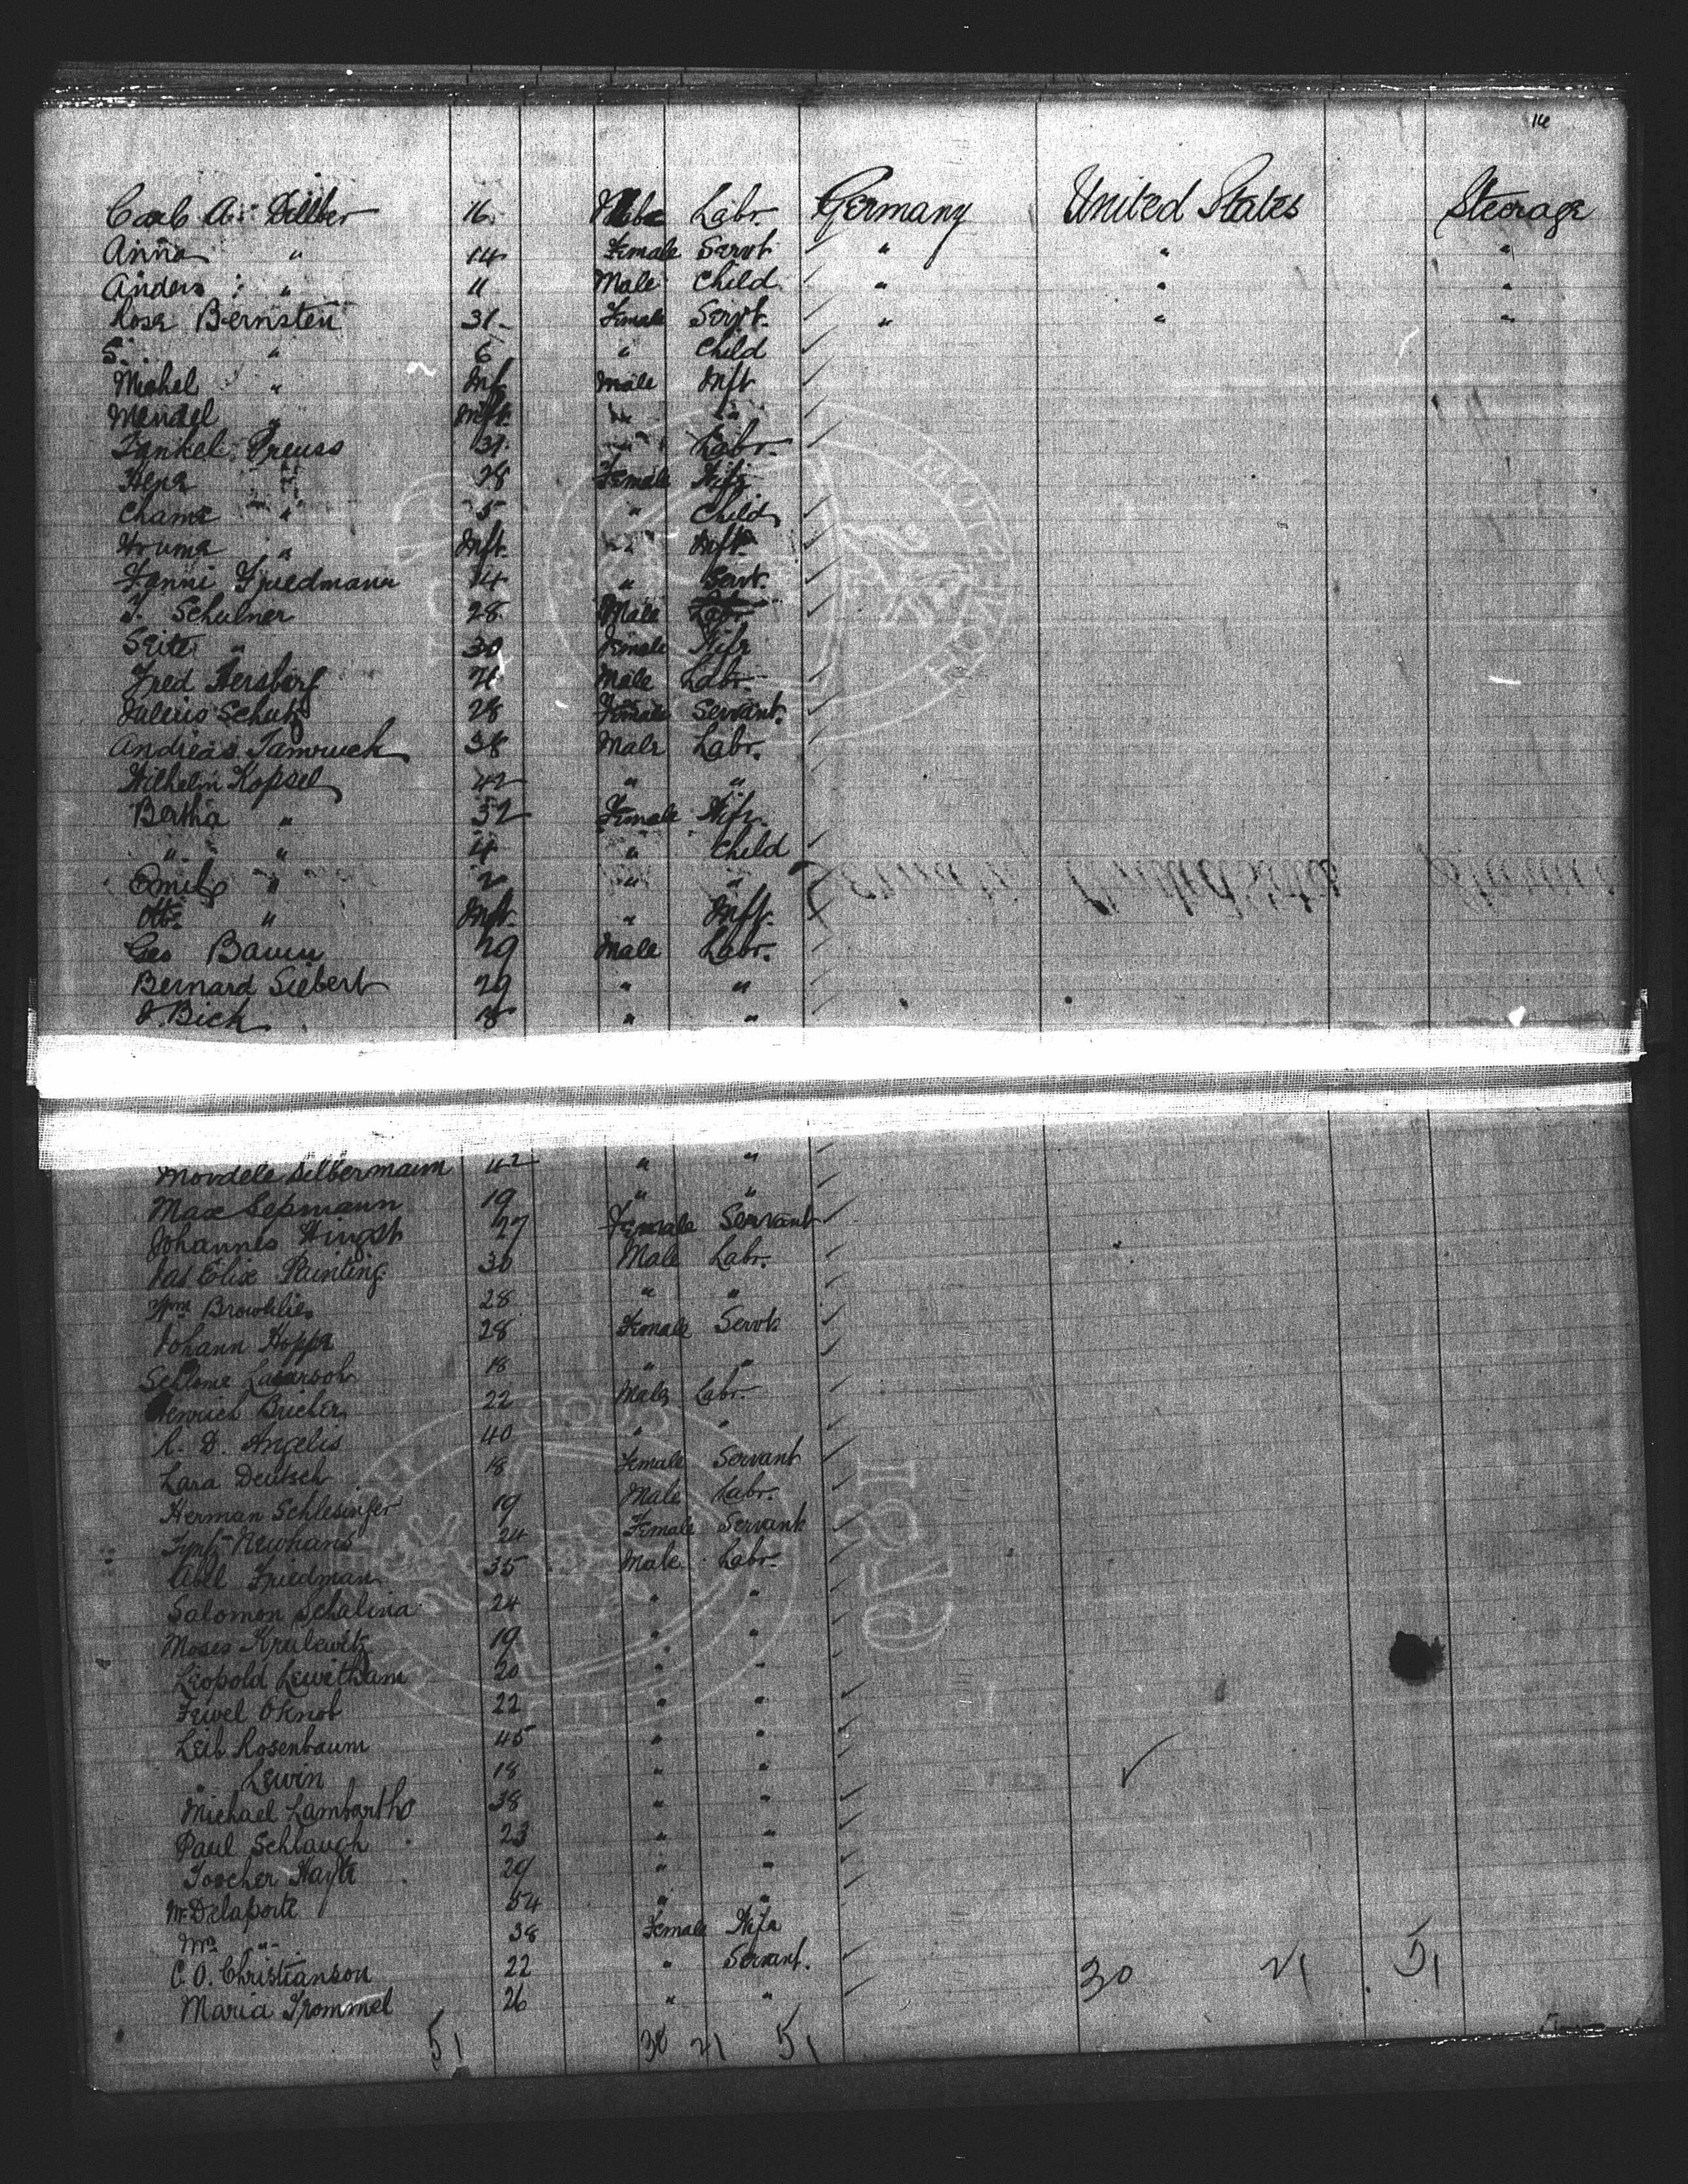 16
Carl A. Dillber 16 Male Labr. Germany United States Steerage
Anna " 14 Female Servt " " "
Anders " 11 Male Child " " "
Rosa Bernstein 31 Female Servt. " " "
S. " 6 " Child
Michel " Inft Male Inft
Mendel " Inft. " "
Jankel Preuss 31 " Labr.
Hena " 28 Female Wife
Chame " 5 " Child
" Inft. " Inft
Fanni Friedmann 14 " Servt.
J. Schulner 28 Male Labr
" 30 Female Wife
Fred Hersberg Male Labr.
Julius Schutz 28 Female Servant.
Andreas 38 Male Labr.
Wilhelm Kopsel 42 " "
Bertha " 32 Female Wife.
" " 4 " Child
Emil " 2 " "
Otto " Inft. " Inft.
Geo 29 Male Labr.
Bernard Siebert 29 " "
J. Bich 18 " "
Mordele Silbermann 42 " "
Max Lepmann 19 " "
Johannes Hingst 27 Female Servant
Painting 30 Male Labr.
Wm Brownlie 28 " "
Johann Hoppe 28 Female Servt
Schlome Lazarsoh 18 " "
Henrich Bucher 22 Male Labr.
A. D. Angelis 40 " "
Lara Deutsch 18 Female Servant
Herman Schlesinger 19 Male Labr.
Newhans 24 Female Servant
Abel Friedman 35 Male Labr.
Salomon Schalina 24 " "
Moses Krulewitz 19 " "
Leopold Lewitham 20 " "
Feiwel Oknot 22 " "
Leib Rosenbaum 45 " "
" Lewin 18 " "
Michael Lambartho 38 " "
Paul Schlaugh 23 " "
Toocher Hayte 29 " "
Mr Delaporte 54 " "
Mrs " 38 Female Wife
C. O. Christianson 22 " Servant.
Maria Trommel 26 " "
30 21 51
51 30 21 51